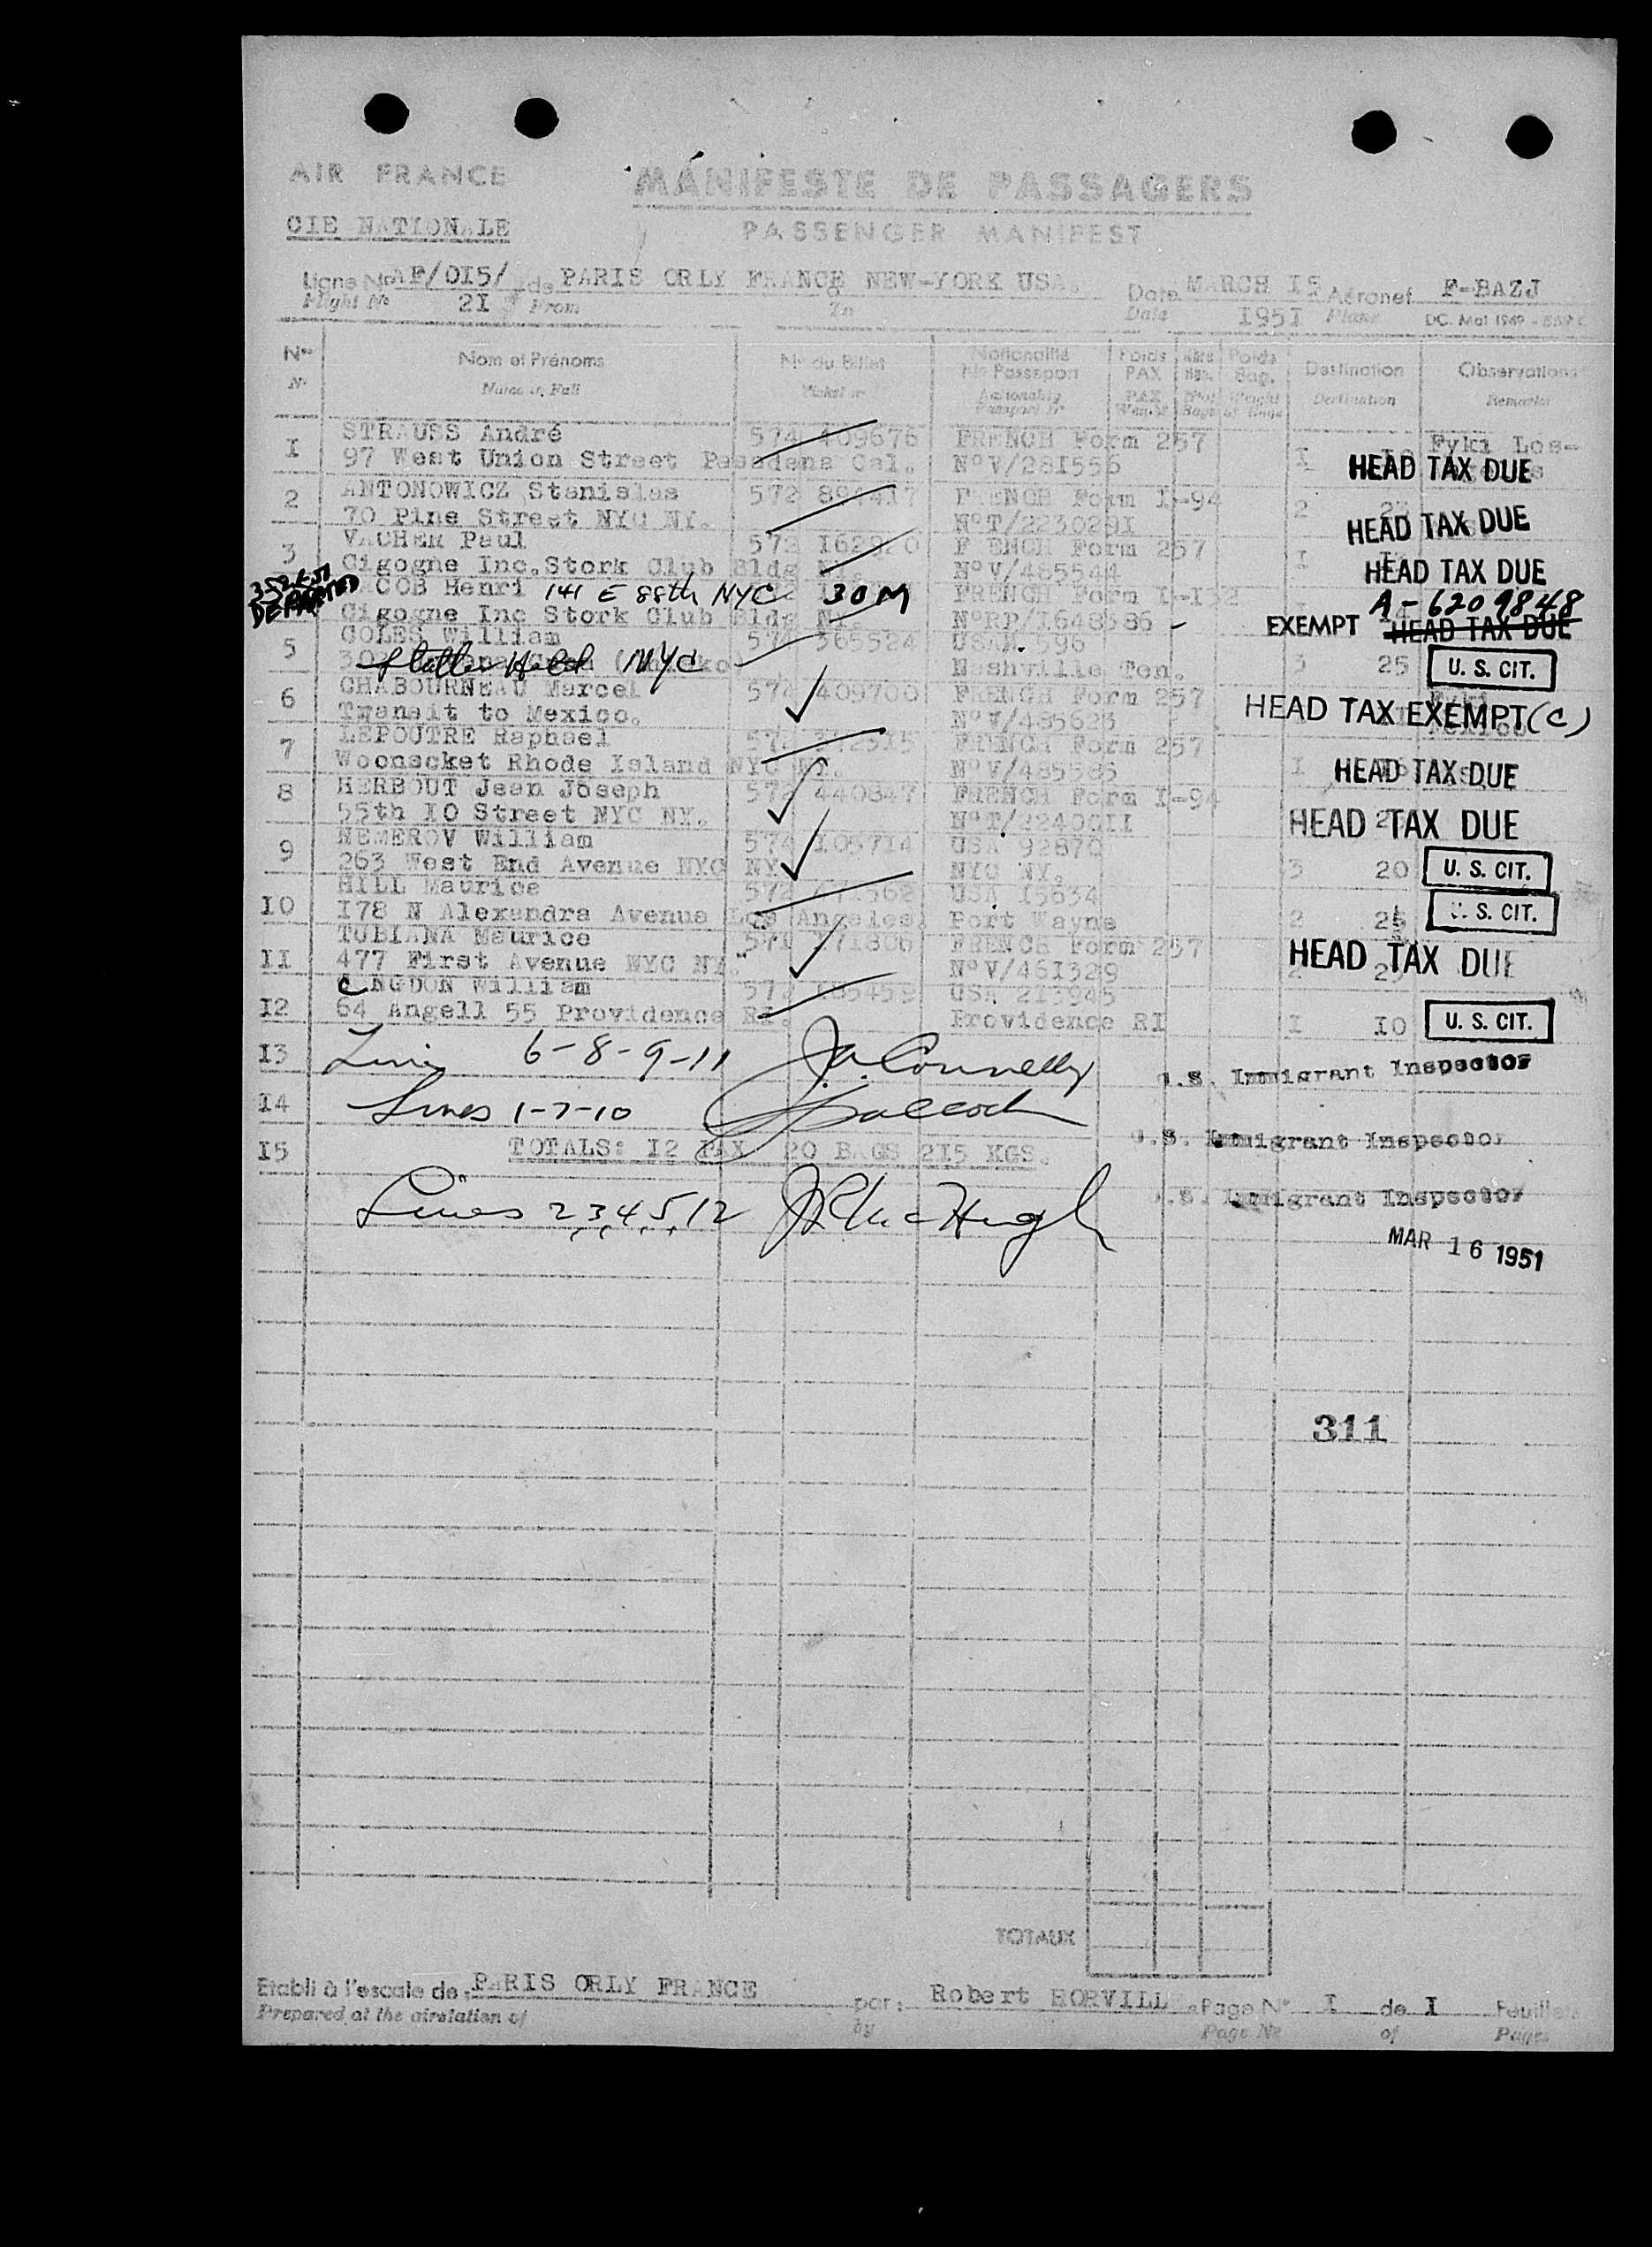 AIR FRANCE
MANIFESTE DE PASSAGERS
CIE NATIONALE
PASSENGER MANIFEST
Ligne No AF/OI5/ de PARIS ORLY FRANCE à NEW-YORK USA. Date MARCH I5 Aéronef F-BAZJ
Flight No 2I From To Date I95I Plane DC. Mai 1949
Nos Nom et Prénoms No du Billet Nationalité No Passeport Poids PAX Poids Bag. Destination Observations
No Name in Full Ticket nr Nationality Passport Nr PAX Destination Remarks
I STRAUSS André 574 409676 FRENCH Form 257 Fyki Los-
97 West Union Street Pasadena Cal. N°V/28I556 I HEAD TAX DUE
2 ANTONOWICZ Stanislas 572 FRENCH Form I-94
70 Pine Street NYC NY. N°T/223029I 2 HEAD TAX DUE
3 VACHER Paul 572 FRENCH Form 257
Cigogne Inc.Stork Club Bldg NY. N°V/485544 I HEAD TAX DUE
DEPARTED JACOB Henri 141 E 88th NYC 30 M FRENCH Form I-I32 A-6209848
Cigogne Inc Stork Club Bldg NY. N°RP/I648586 EXEMPT HEAD TAX DUE
5 COLES William 574 365524 USA. 596
NYC Nashville Ten. 3 25 U. S. CIT.
6 CHABOURNEAU Marcel 574 409700 FRENCH Form 257 Fyki
Transit to Mexico. N°V/485623 HEAD TAX EXEMPT (C) Mexico
7 LEPOUTRE Raphael FRENCH Form 257
Woonsocket Rhode Island NYC NY. N°V/485585 I HEAD TAX DUE
8 HERBOUT Jean Joseph 572 440847 FRENCH Form I-94
55th IO Street NYC NY. N°T/22400II HEAD TAX DUE
9 NEMEROV William 574 I05714 USA 92870
263 West End Avenue NYC NY NYC NY. 3 20 U. S. CIT.
HILL Maurice 572 USA I5634
IO I78 N Alexandra Avenue Los Angeles Fort Wayne 2 25 U. S. CIT.
TUBIANA Maurice 571 I71806 FRENCH Form 257
II 477 First Avenue NYC NY. N°V/46I329 2 HEAD TAX DUE
CONGDON William 572 USA 2I3945
I2 64 Angell 55 Providence RI. Providence RI I IO U. S. CIT.
I3 Lines 6-8-9-11 J.A. Connelly U.S. Immigrant Inspector
I4 Lines 1-7-10 U.S. Immigrant Inspector
I5 TOTALS: I2 PAX 20 BAGS 2I5 KGS.
Lines 2,3,4,5,12 J R McHugh U.S. Immigrant Inspector
MAR 16 1951
311
TOTAUX
Etabli à l'escale de : PARIS ORLY FRANCE par : Robert HORVILLE Page N° I de I Feuillets
Prepared at the airstation of by Page Nr of Pages